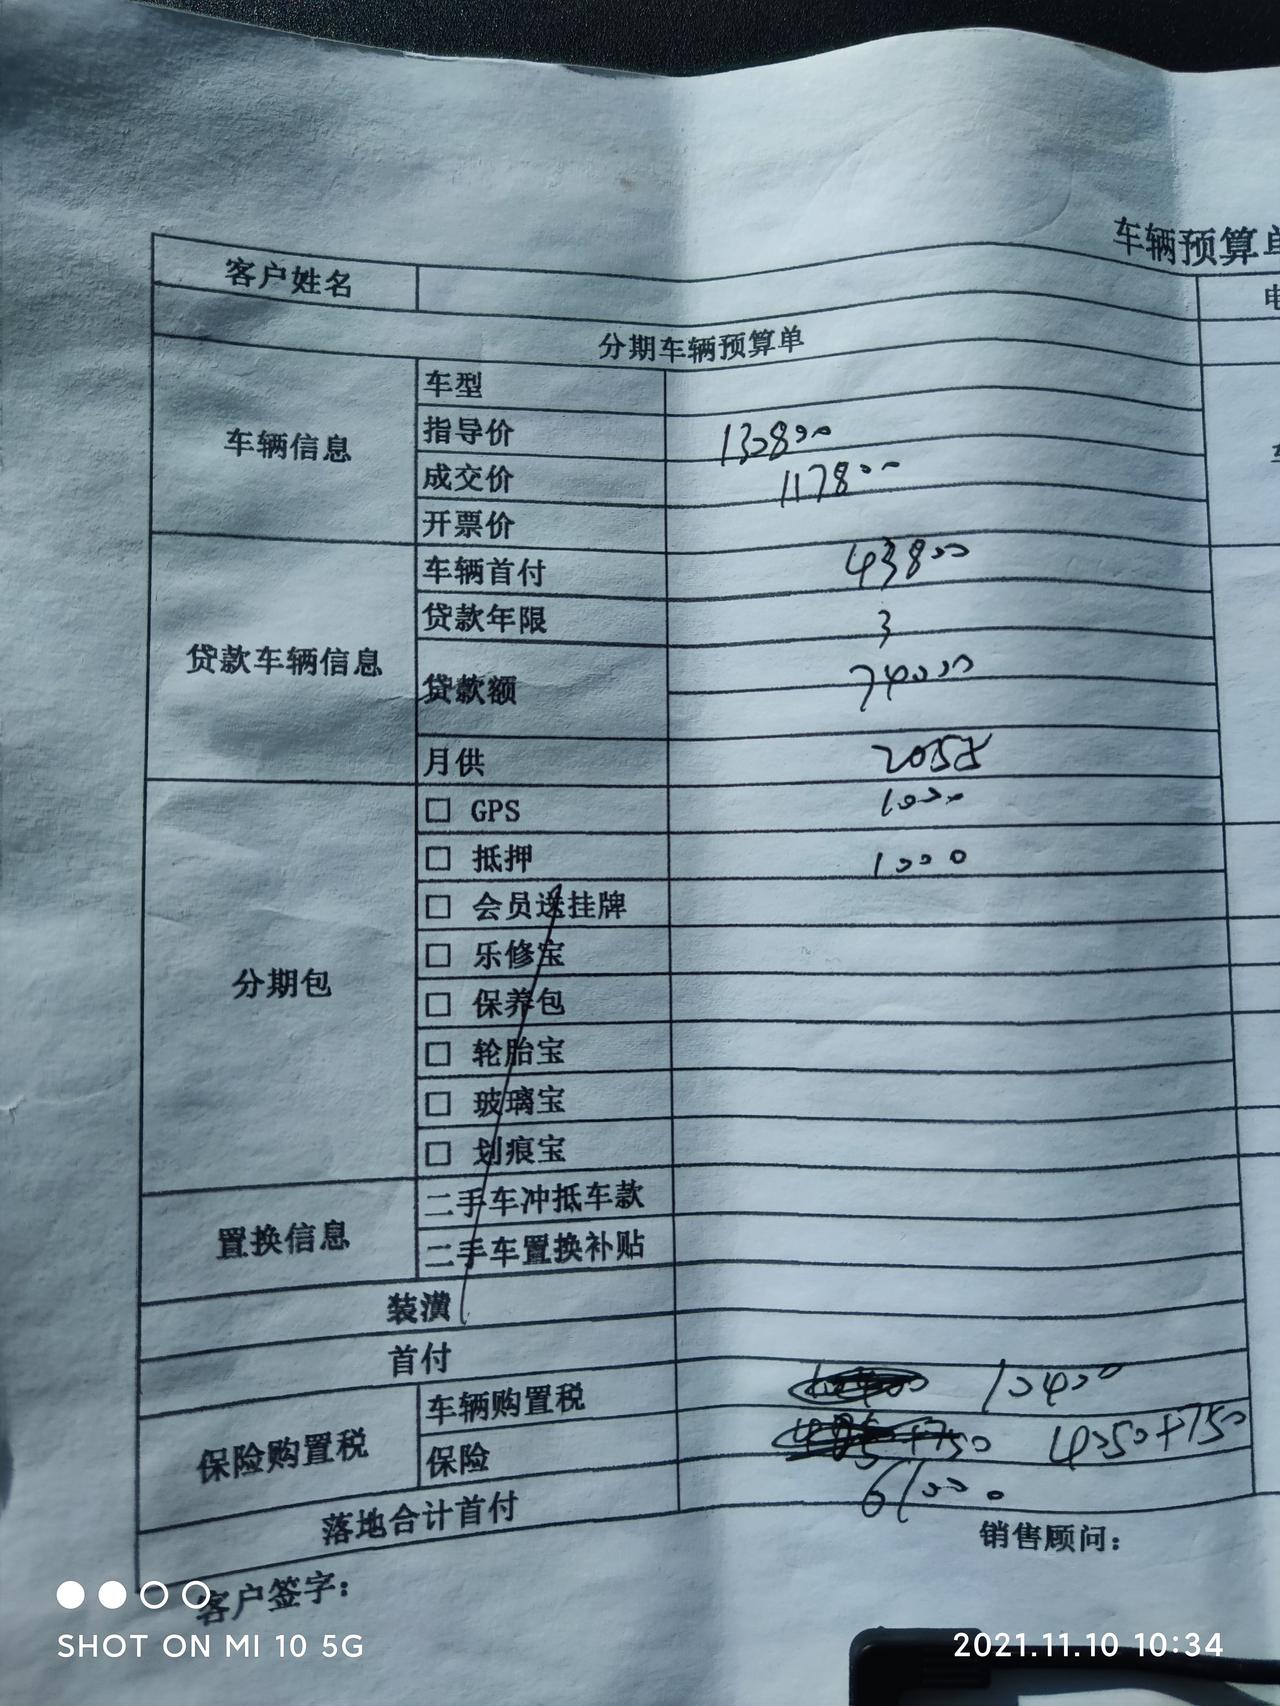 车辆预算单
客户姓名
电
分期车辆预算单
车辆信息
车型
指导价 130800
成交价 117800
开票价
贷款车辆信息
车辆首付 43800
贷款年限 3
贷款额 74000
月供 2058
分期包
□ GPS 1000
□ 抵押 1000
□ 会员送挂牌
□ 乐修宝
□ 保养包
□ 轮胎宝
□ 玻璃宝
□ 划痕宝
置换信息
二手车冲抵车款
二手车置换补贴
装潢
首付
保险购置税
车辆购置税 10400
保险 +750 4050+750
落地合计首付 61000
销售顾问：
客户签字：
SHOT ON MI 10 5G
2021.11.10 10:34